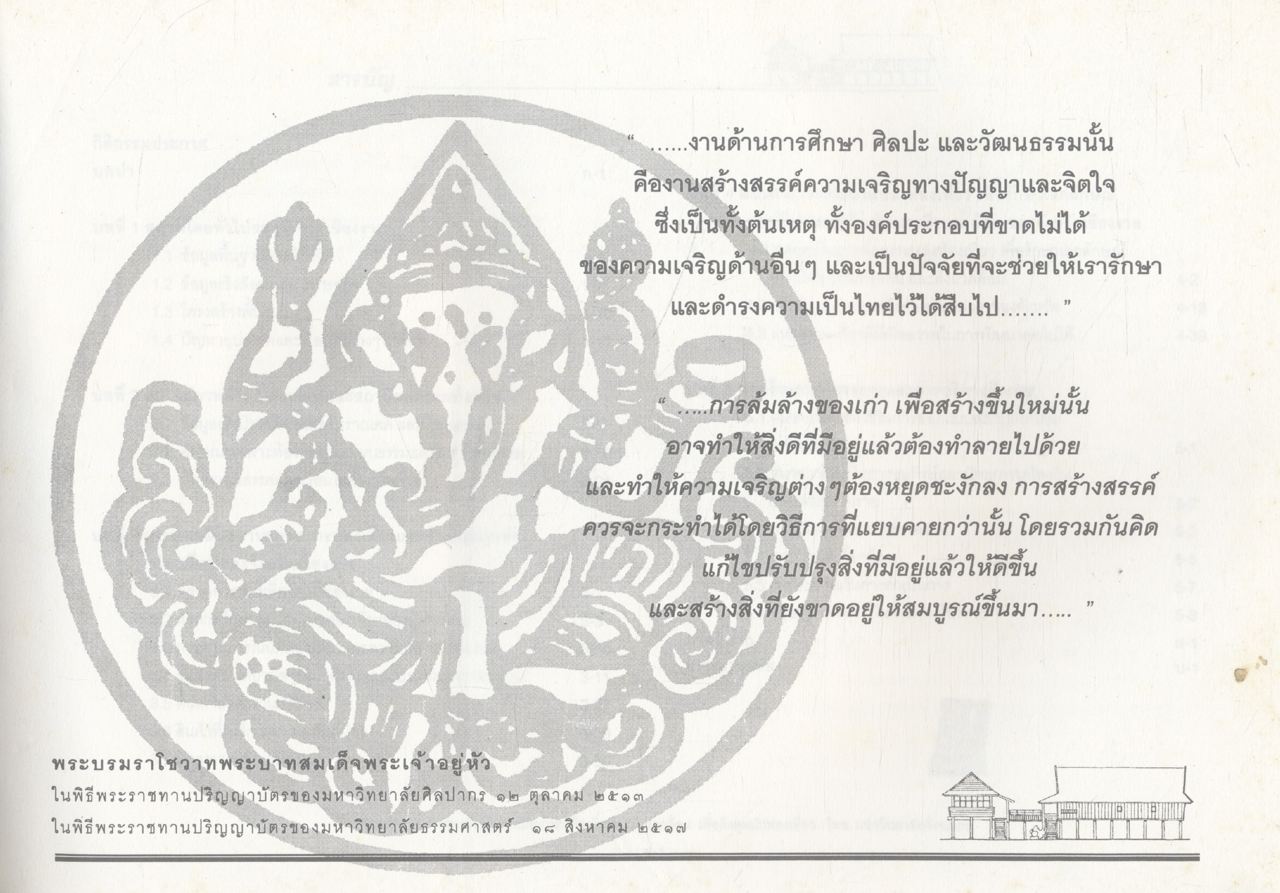 “ ......งานด้านการศึกษา ศิลปะ และวัฒนธรรมนั้น
คืองานสร้างสรรค์ความเจริญทางปัญญาและจิตใจ
ซึ่งเป็นทั้งต้นเหตุ ทั้งองค์ประกอบที่ขาดไม่ได้
ของความเจริญด้านอื่นๆ และเป็นปัจจัยที่จะช่วยให้เรารักษา
และดำรงความเป็นไทยไว้ได้สืบไป....... ”
“ .....การล้มล้างของเก่า เพื่อสร้างขึ้นใหม่นั้น
อาจทำให้สิ่งดีที่มีอยู่แล้วต้องทำลายไปด้วย
และทำให้ความเจริญต่างๆต้องหยุดชะงักลง การสร้างสรรค์
ควรจะกระทำได้โดยวิธีการที่แยบคายกว่านั้น โดยรวมกันคิด
แก้ไขปรับปรุงสิ่งที่มีอยู่แล้วให้ดีขึ้น
และสร้างสิ่งที่ยังขาดอยู่ให้สมบูรณ์ขึ้นมา..... ”
พระบรมราโชวาทพระบาทสมเด็จพระเจ้าอยู่หัว
ในพิธีพระราชทานปริญญาบัตรของมหาวิทยาลัยศิลปากร ๑๒ ตุลาคม ๒๕๑๓
ในพิธีพระราชทานปริญญาบัตรของมหาวิทยาลัยธรรมศาสตร์ ๑๘ สิงหาคม ๒๕๑๗